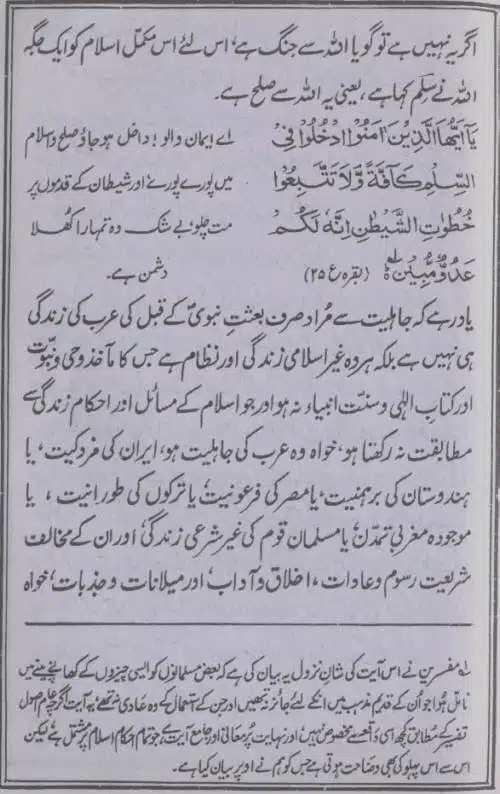 اگر یہ نہیں ہے تو گویا اللہ سے جنگ ہے، اس لئے اس مکمل اسلام کو ایک جگہ
اللہ نے سِلم کہا ہے، یعنی یہ اللہ سے صلح ہے۔
يَا أَيُّهَا الَّذِيْنَ اٰمَنُوا ادْخُلُوْا فِی
السِّلْمِ كَآفَّةً وَّلَا تَتَّبِعُوْا
خُطُوٰتِ الشَّيْطٰنِ اِنَّهٗ لَكُمْ
عَدُوٌّ مُّبِيْنٌ ۵ لہ (بقرہ ع ۲۵)
اے ایمان والو! داخل ہو جاؤ صلح و اسلام
میں پورے پورے اور شیطان کے قدموں پر
مت چلو بے شک وہ تمہارا کھلا
دشمن ہے۔
یاد رہے کہ جاہلیت سے مُراد صرف بعثتِ نبوی کے قبل کی عرب کی زندگی
ہی نہیں ہے بلکہ ہر وہ غیر اسلامی زندگی اور نظام ہے جس کا مآخذ وحی و نبوّت
اور کتابِ الٰہی و سنّت انبیاء نہ ہو اور جو اسلام کے مسائل اور احکام زندگی سے
مطابقت نہ رکھتا ہو، خواہ وہ عرب کی جاہلیت ہو، ایران کی مزدکیت، یا
ہندوستان کی برہمنیت، یا مصر کی فرعونیت یا ترکوں کی طورانیت، یا
موجودہ مغربی تمدّن، یا مسلمان قوم کی غیر شرعی زندگی اور ان کے مخالف
شریعت رسوم و عادات، اخلاق و آداب، اور میلانات و جذبات، خواہ
لہ مفسرین نے اس آیت کی شانِ نزول یہ بیان کی ہے کہ بعض مسلمانوں کو ایسی چیزوں کے کھانے پینے میں
تامل ہوا جو اُن کے قدیم مذہب میں انکے لئے جائز نہ تھیں اور جن کے استعمال کے وہ عادی نہ تھے، یہ آیت اگرچہ عام اصول
تفسیر کے مطابق کچھ اسی واقعہ سے مخصوص نہیں، اور نہایت پُر معانی اور جامع آیت ہے، جو تمام احکام اسلام پر مشتمل ہے، لیکن
اس سے اس پہلو کی بھی وضاحت ہوتی ہے جس کو ہم نے اوپر بیان کیا ہے۔